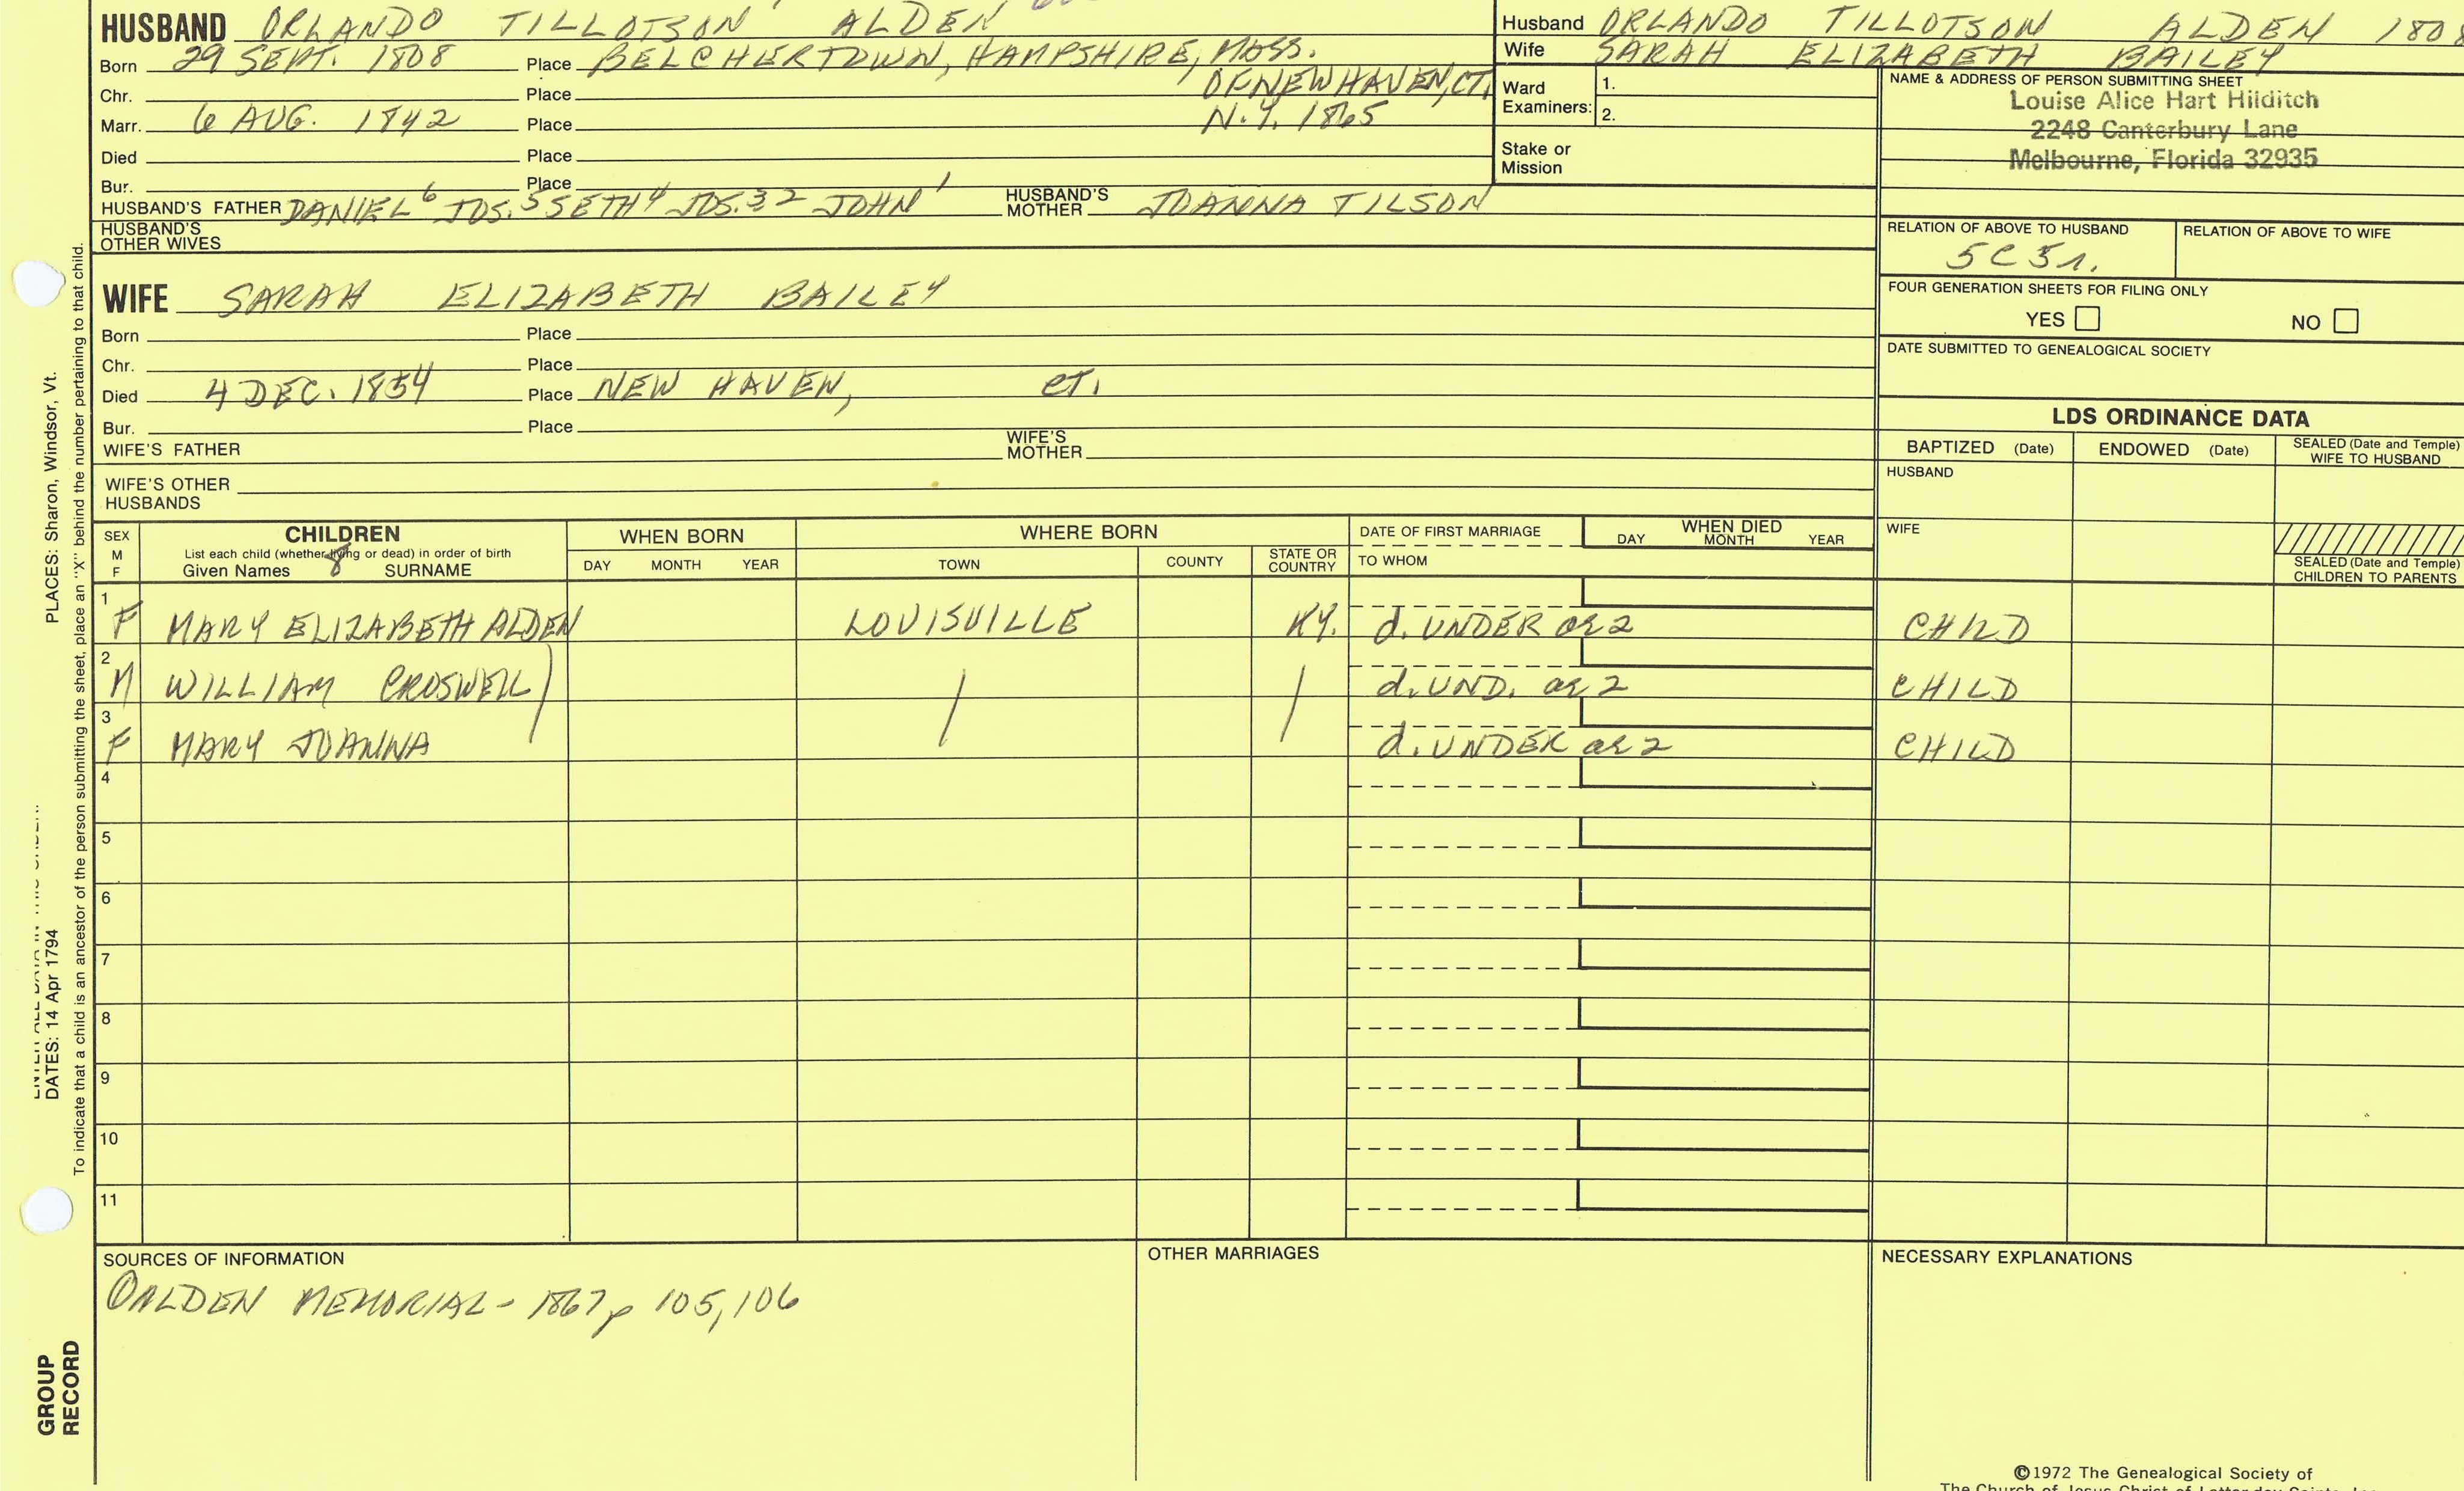 HUSBAND ORLANDO TILLOTSON ALDEN
Born 29 SEPT. 1808 Place BELCHERTOWN, HAMPSHIRE, MASS.
Chr. Place OF NEW HAVEN, CT,
Marr. 6 AUG. 1842 Place N.Y. 1865
Died Place
Bur. Place
HUSBAND'S FATHER DANIEL 6 JOS. 5 SETH 4 JOS. 3 2 JOHN 1 HUSBAND'S MOTHER JOANNA TILSON
HUSBAND'S
OTHER WIVES
WIFE SARAH ELIZABETH BAILEY
Born Place
Chr. Place
Died 4 DEC. 1854 Place NEW HAVEN, CT.
Bur. Place
WIFE'S FATHER WIFE'S MOTHER
WIFE'S OTHER
HUSBANDS
Husband ORLANDO TILLOTSON ALDEN 1808
Wife SARAH ELIZABETH BAILEY
Ward
Examiners:
1.
2.
Stake or
Mission
NAME & ADDRESS OF PERSON SUBMITTING SHEET
Louise Alice Hart Hilditch
2248 Canterbury Lane
Melbourne, Florida 32935
RELATION OF ABOVE TO HUSBAND RELATION OF ABOVE TO WIFE
5C 5r.
FOUR GENERATION SHEETS FOR FILING ONLY
YES NO
DATE SUBMITTED TO GENEALOGICAL SOCIETY
LDS ORDINANCE DATA
BAPTIZED (Date) ENDOWED (Date) SEALED (Date and Temple)
WIFE TO HUSBAND
HUSBAND
WIFE
SEALED (Date and Temple)
CHILDREN TO PARENTS
SEX
M
F
CHILDREN
List each child (whether living or dead) in order of birth
Given Names 8 SURNAME
WHEN BORN
DAY MONTH YEAR
WHERE BORN
TOWN COUNTY STATE OR
COUNTRY
DATE OF FIRST MARRIAGE
TO WHOM
WHEN DIED
DAY MONTH YEAR
1 F MARY ELIZABETH ALDEN LOUISVILLE KY. d. UNDER ae 2 CHILD
2 M WILLIAM CROSWELL d. UND. ae 2 CHILD
3 F MARY JOANNA d. UNDER ae 2 CHILD
4
5
6
7
8
9
10
11
SOURCES OF INFORMATION
ALDEN MEMORIAL - 1867 p 105, 106
OTHER MARRIAGES
NECESSARY EXPLANATIONS
©1972 The Genealogical Society of
The Church of Jesus Christ of Latter-day Saints, Inc.
PLACES: Sharon, Windsor, Vt.
DATES: 14 Apr 1794
To indicate that a child is an ancestor of the person submitting the sheet, place an "X" behind the number pertaining to that child.
GROUP
RECORD